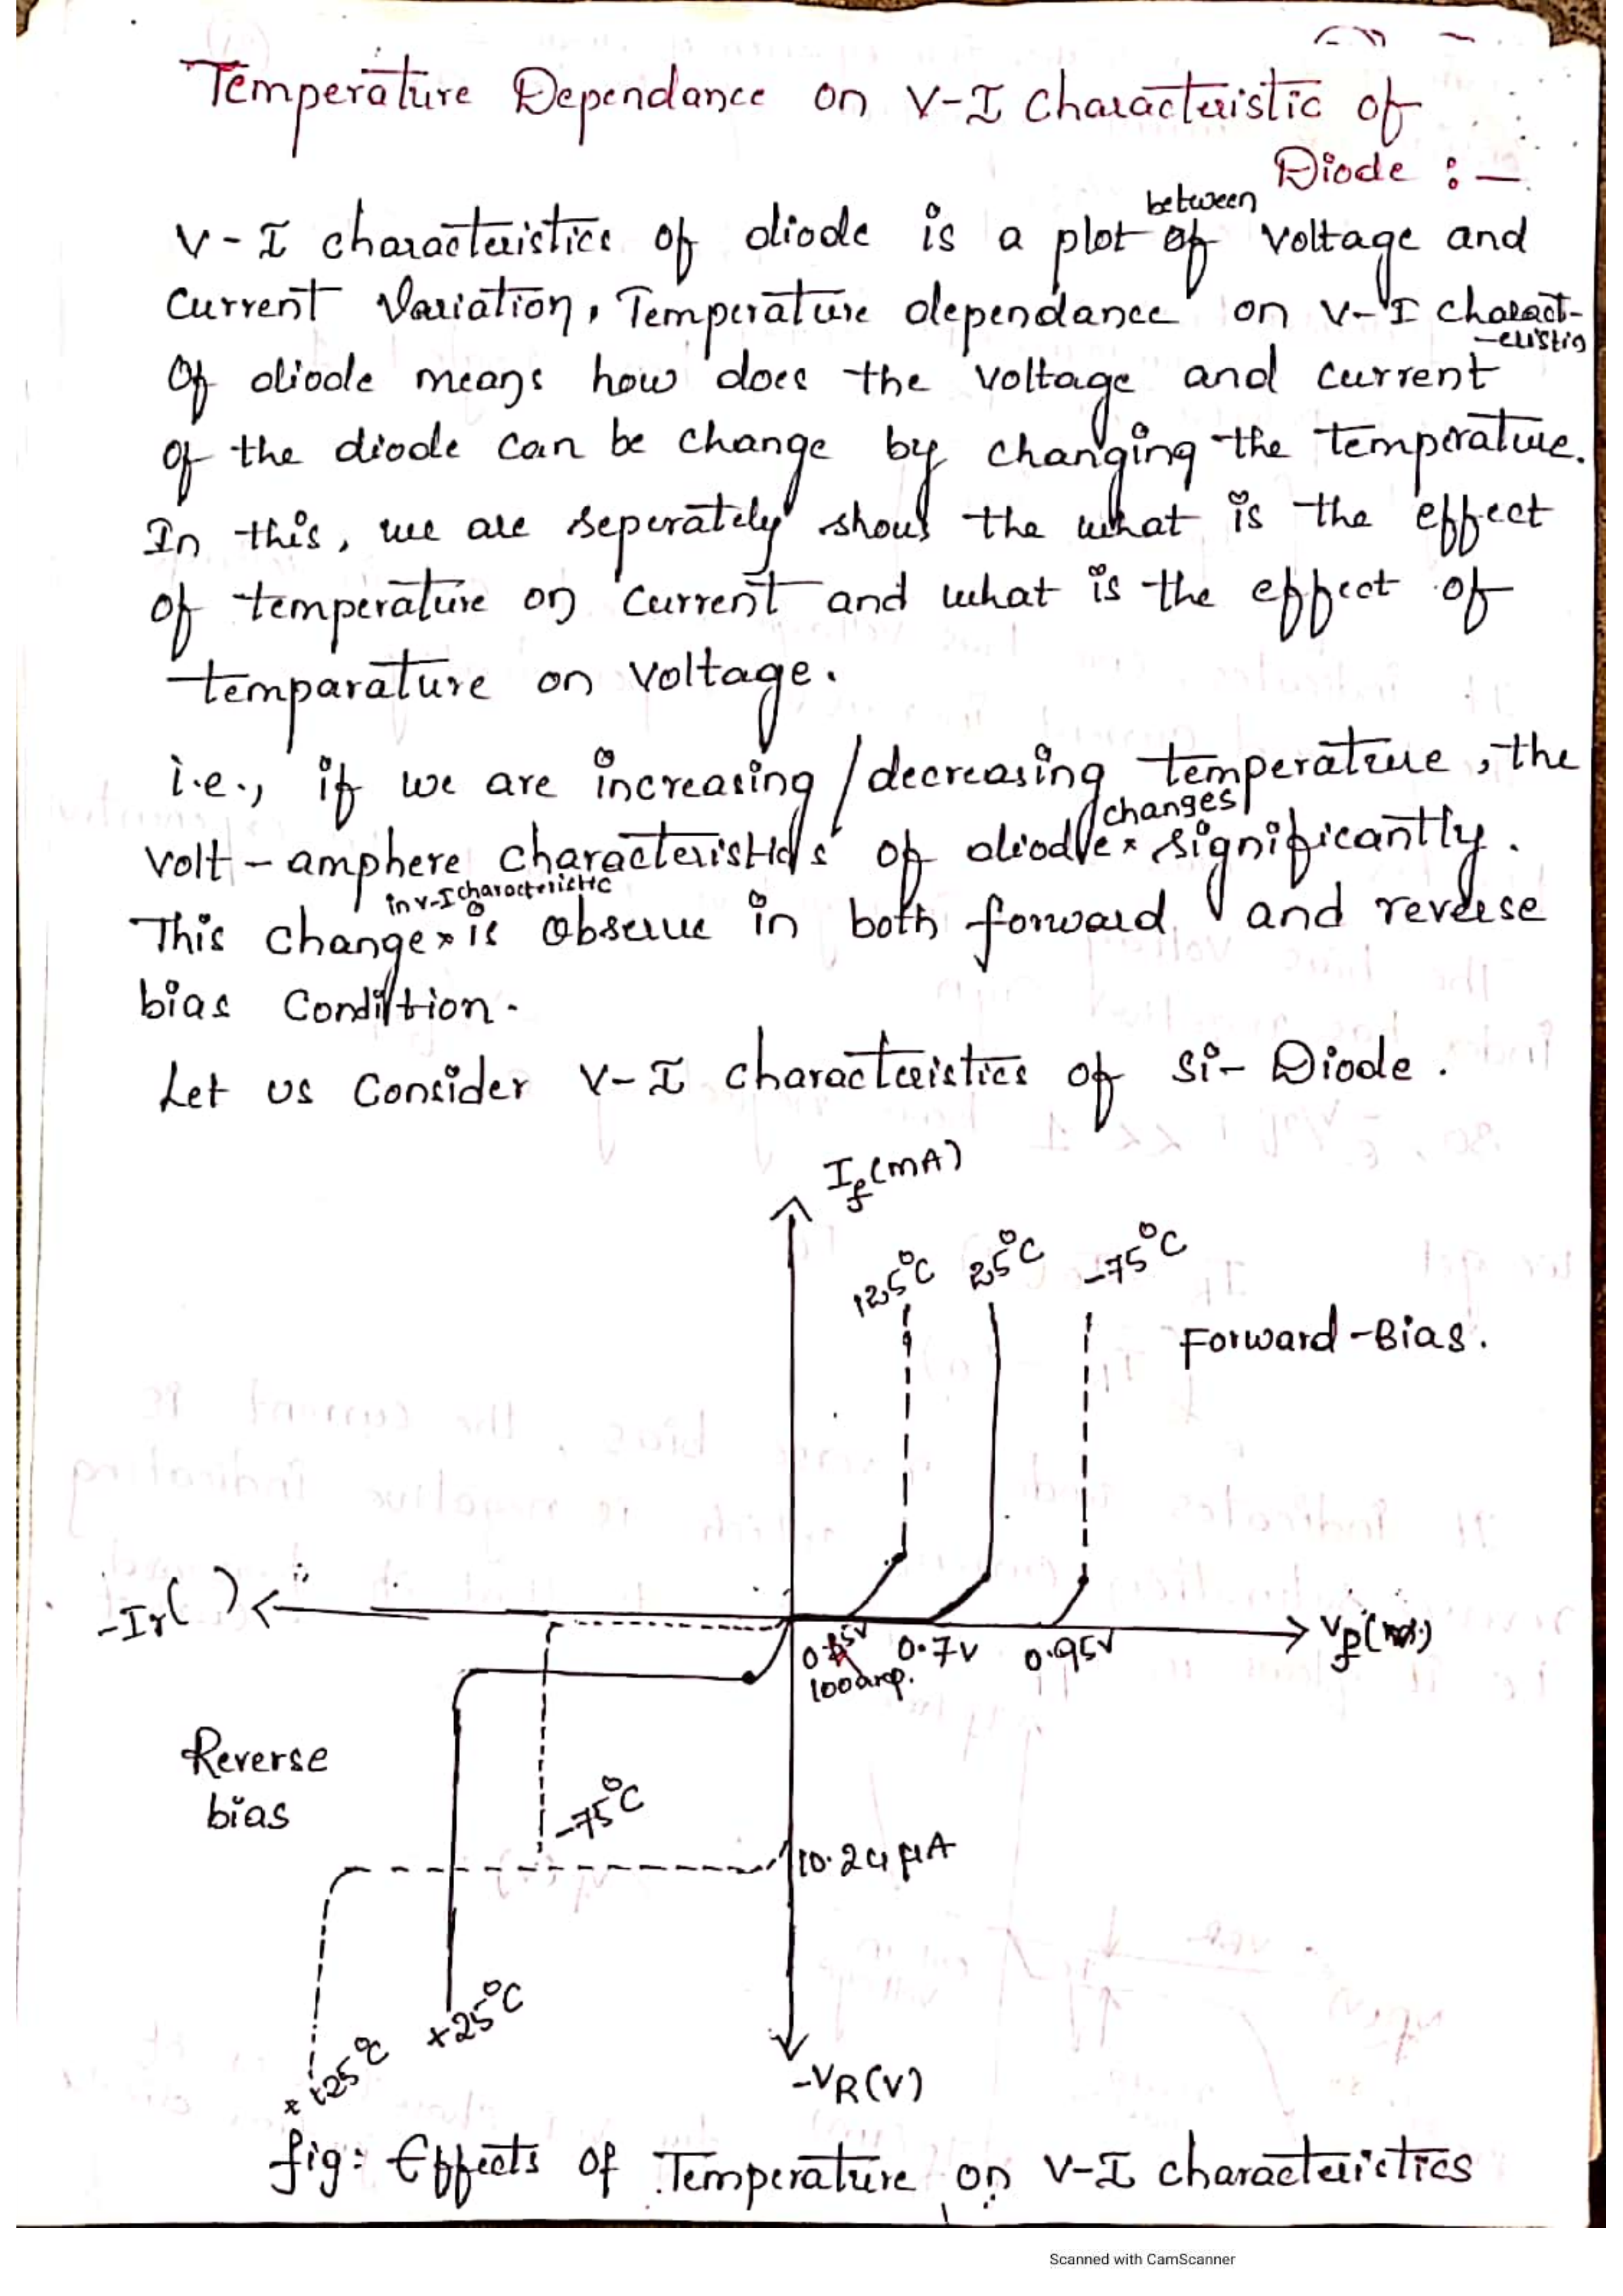 Temperature Dependance on V-I Characteristic of
Diode :-
between
V-I characteristics of diode is a plot of voltage and
current variation, Temperature dependance on V-I charact-
-eristic
Of diode means how does the voltage and current
of the diode can be change by changing the temperature.
In this, we are seperately shows the what is the effect
of temperature on current and what is the effect of
temparature on voltage.
i.e., if we are increasing/decreasing temperature, the
changes
volt-amphere characteristics of diode × significantly.
in V-I characteristic
This change × is observe in both forward and reverse
bias condition.
Let us Consider V-I characteristics of Si-Diode.
If(mA)
125°C 25°C -75°C
Forward-Bias.
-Ir( )
0.7V 0.95V
Vf
100amp.
Reverse
bias
-75°C
10.24 μA
+25°C
-VR(V)
fig: Effects of Temperature on V-I characteristics
Scanned with CamScanner